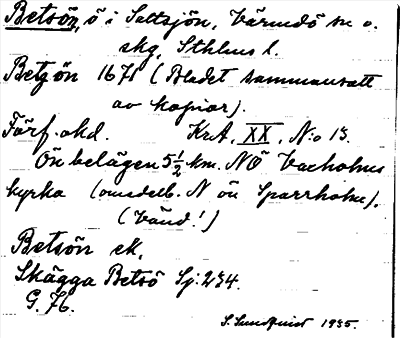 Betsön, ö i Saltsjön, Värmdö sn o.
skg, Sthlms l.
Betzön 1671 (Bladet sammansatt
av kopior).
Förf. okd. KrA, XX, N:o 13.
Ön belägen 5½ km. NÖ Vaxholms
kyrka (omedelb. N ön Sparrholm).
(Vänd!)
Betsön ek.
Skägga Betsö Sp: 234.
G. 76.
S. Sundqvist 1935.